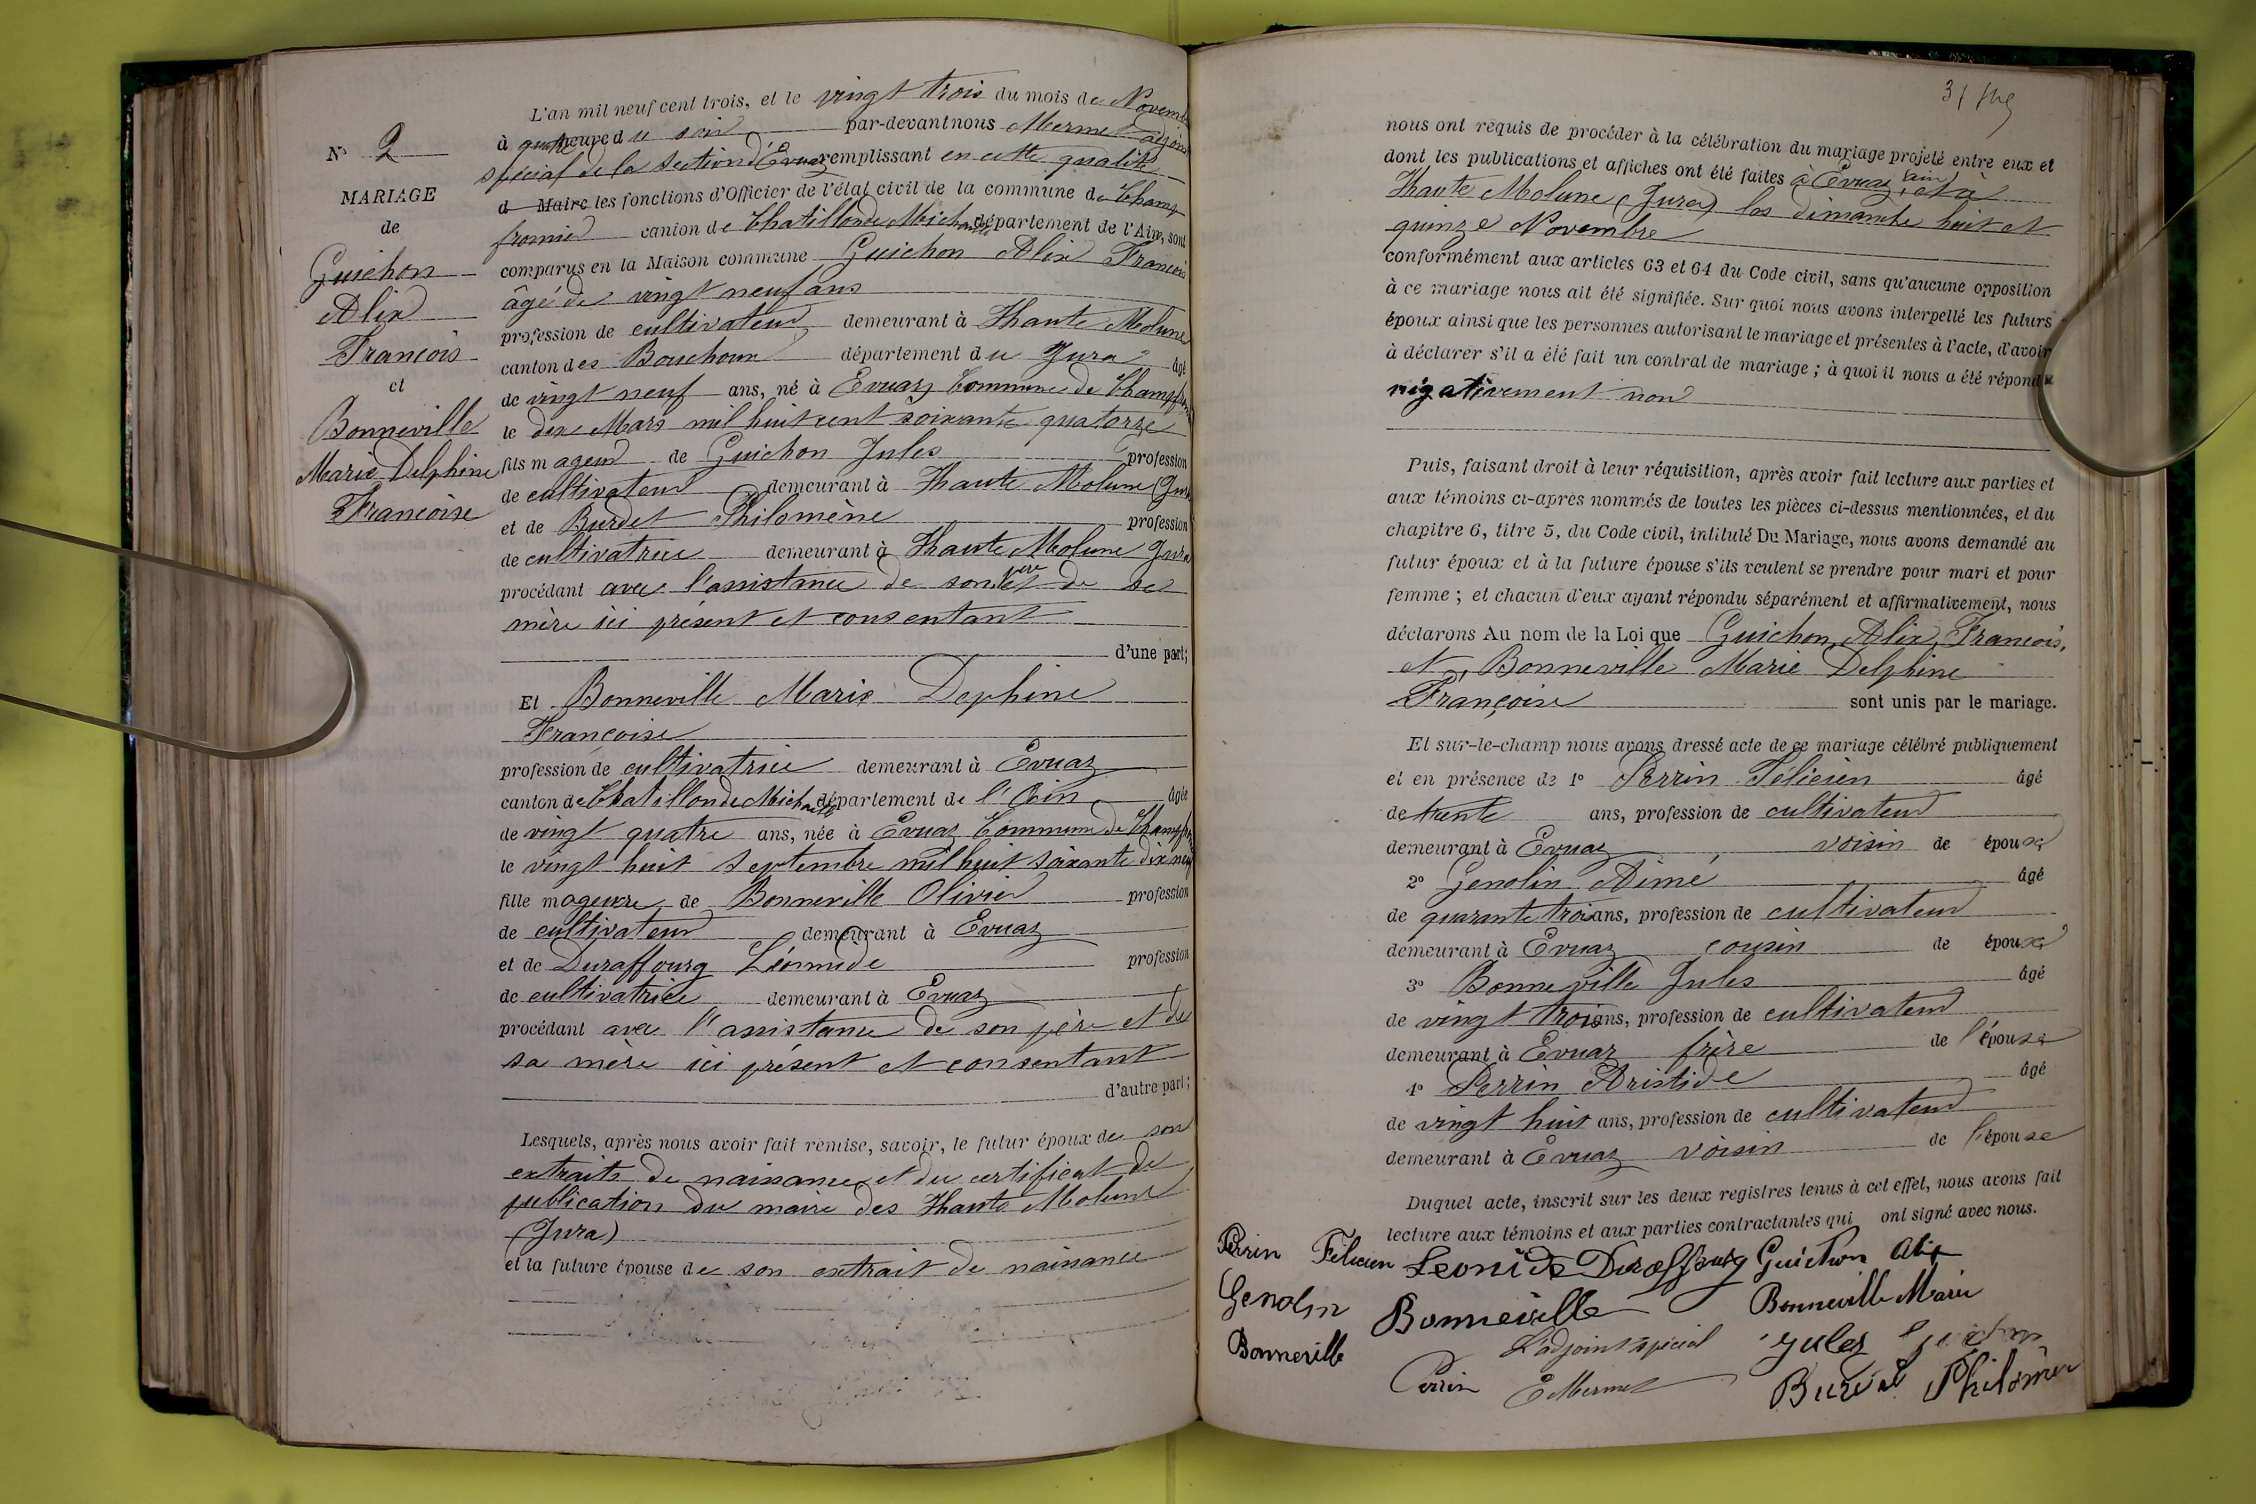 N° 2
MARIAGE
de
Guichon
Alix
François
et
Bonneville
Marie Delphine
Françoise
L'an mil neuf cent trois, et le vingt trois du mois de Novembre
à quatre heure du soir par-devant nous Mermet adjoint
spécial de la section d'Évuaz remplissant en cette qualité
d Maire les fonctions d'Officier de l'état civil de la commune de Champ
fromier canton de Chatillon de Michaille département de l'Ain, sont
comparus en la Maison commune Guichon Alix François
âgé de vingt neuf ans
profession de cultivateur demeurant à Haute Molune
canton des Bouchoux département du Jura âgé
de vingt neuf ans, né à Evuaz Commune de Champfromier
le dix Mars mil huit cent soixante quatorze
fils mageur de Guichon Jules profession
de cultivateur demeurant à Haute Molune (Jura
et de Burdet Philomène profession
de cultivatrice demeurant à Haute Molune Jura
procédant avec l'assistance de son père et de sa
mère ici présent et consentant
d'une part;
Et Bonneville Marie Dephine
Françoise
profession de cultivatrice demeurant à Evuaz
canton de Chatillon de Michaille département de l'Ain âgée
de vingt quatre ans, née à Evuaz Commune de Champfromier
le vingt huit septembre mil huit soixante dix neuf
fille mageure de Bonneville Olivier profession
de cultivateur demeurant à Evuaz
et de Duraffourg Léonnide profession
de cultivatrice demeurant à Evuaz
procédant avec l'assistance de son père et de
sa mère ici présent et consentant
d'autre part;
Lesquels, après nous avoir fait remise, savoir, le futur époux de son
extraits de naissance et du certificat de
publication du maire des Haute Molune
(Jura)
et la future épouse de son extrait de naissance
nous ont requis de procéder à la célébration du mariage projeté entre eux et
dont les publications et affiches ont été faites à Evuaz (ain) et à
Haute Molune (Jura) les dimanche huit et
quinze Novembre
conformément aux articles 63 et 64 du Code civil, sans qu'aucune opposition
à ce mariage nous ait été signifiée. Sur quoi nous avons interpellé les futurs
époux ainsi que les personnes autorisant le mariage et présentes à l'acte, d'avoir
à déclarer s'il a été fait un contrat de mariage; à quoi il nous a été répondu
négativement non
Puis, faisant droit à leur réquisition, après avoir fait lecture aux parties et
aux témoins ci-après nommés de toutes les pièces ci-dessus mentionnées, et du
chapitre 6, titre 5, du Code civil, intitulé Du Mariage, nous avons demandé au
futur époux et à la future épouse s'ils veulent se prendre pour mari et pour
femme; et chacun d'eux ayant répondu séparément et affirmativement, nous
déclarons Au nom de la Loi que Guichon, Alix, François,
et, Bonneville Marie Delphine
Françoise sont unis par le mariage.
Et sur-le-champ nous avons dressé acte de ce mariage célébré publiquement
et en présence de 1° Perrin Félicien âgé
de trente ans, profession de cultivateur
demeurant à Evuaz voisin de époux
2° Genolin Aimé âgé
de quarante trois ans, profession de cultivateur
demeurant à Evuaz cousin de époux
3° Bonneville Jules âgé
de vingt trois ans, profession de cultivateur
demeurant à Evuaz frère de l'épouse
4° Perrin Aristide âgé
de vingt huit ans, profession de cultivateur
demeurant à Evuaz voisin de l'épouse
Duquel acte, inscrit sur les deux registres tenus à cet effet, nous avons fait
lecture aux témoins et aux parties contractantes qui ont signé avec nous.
Perrin Félicien Leonide Duraffourg Guichon Alix
Genolin Bonneville Bonneville Marie
Bonneville L'adjoint spécial Jules Guichon
Perrin E Mermet Burdet Philomène